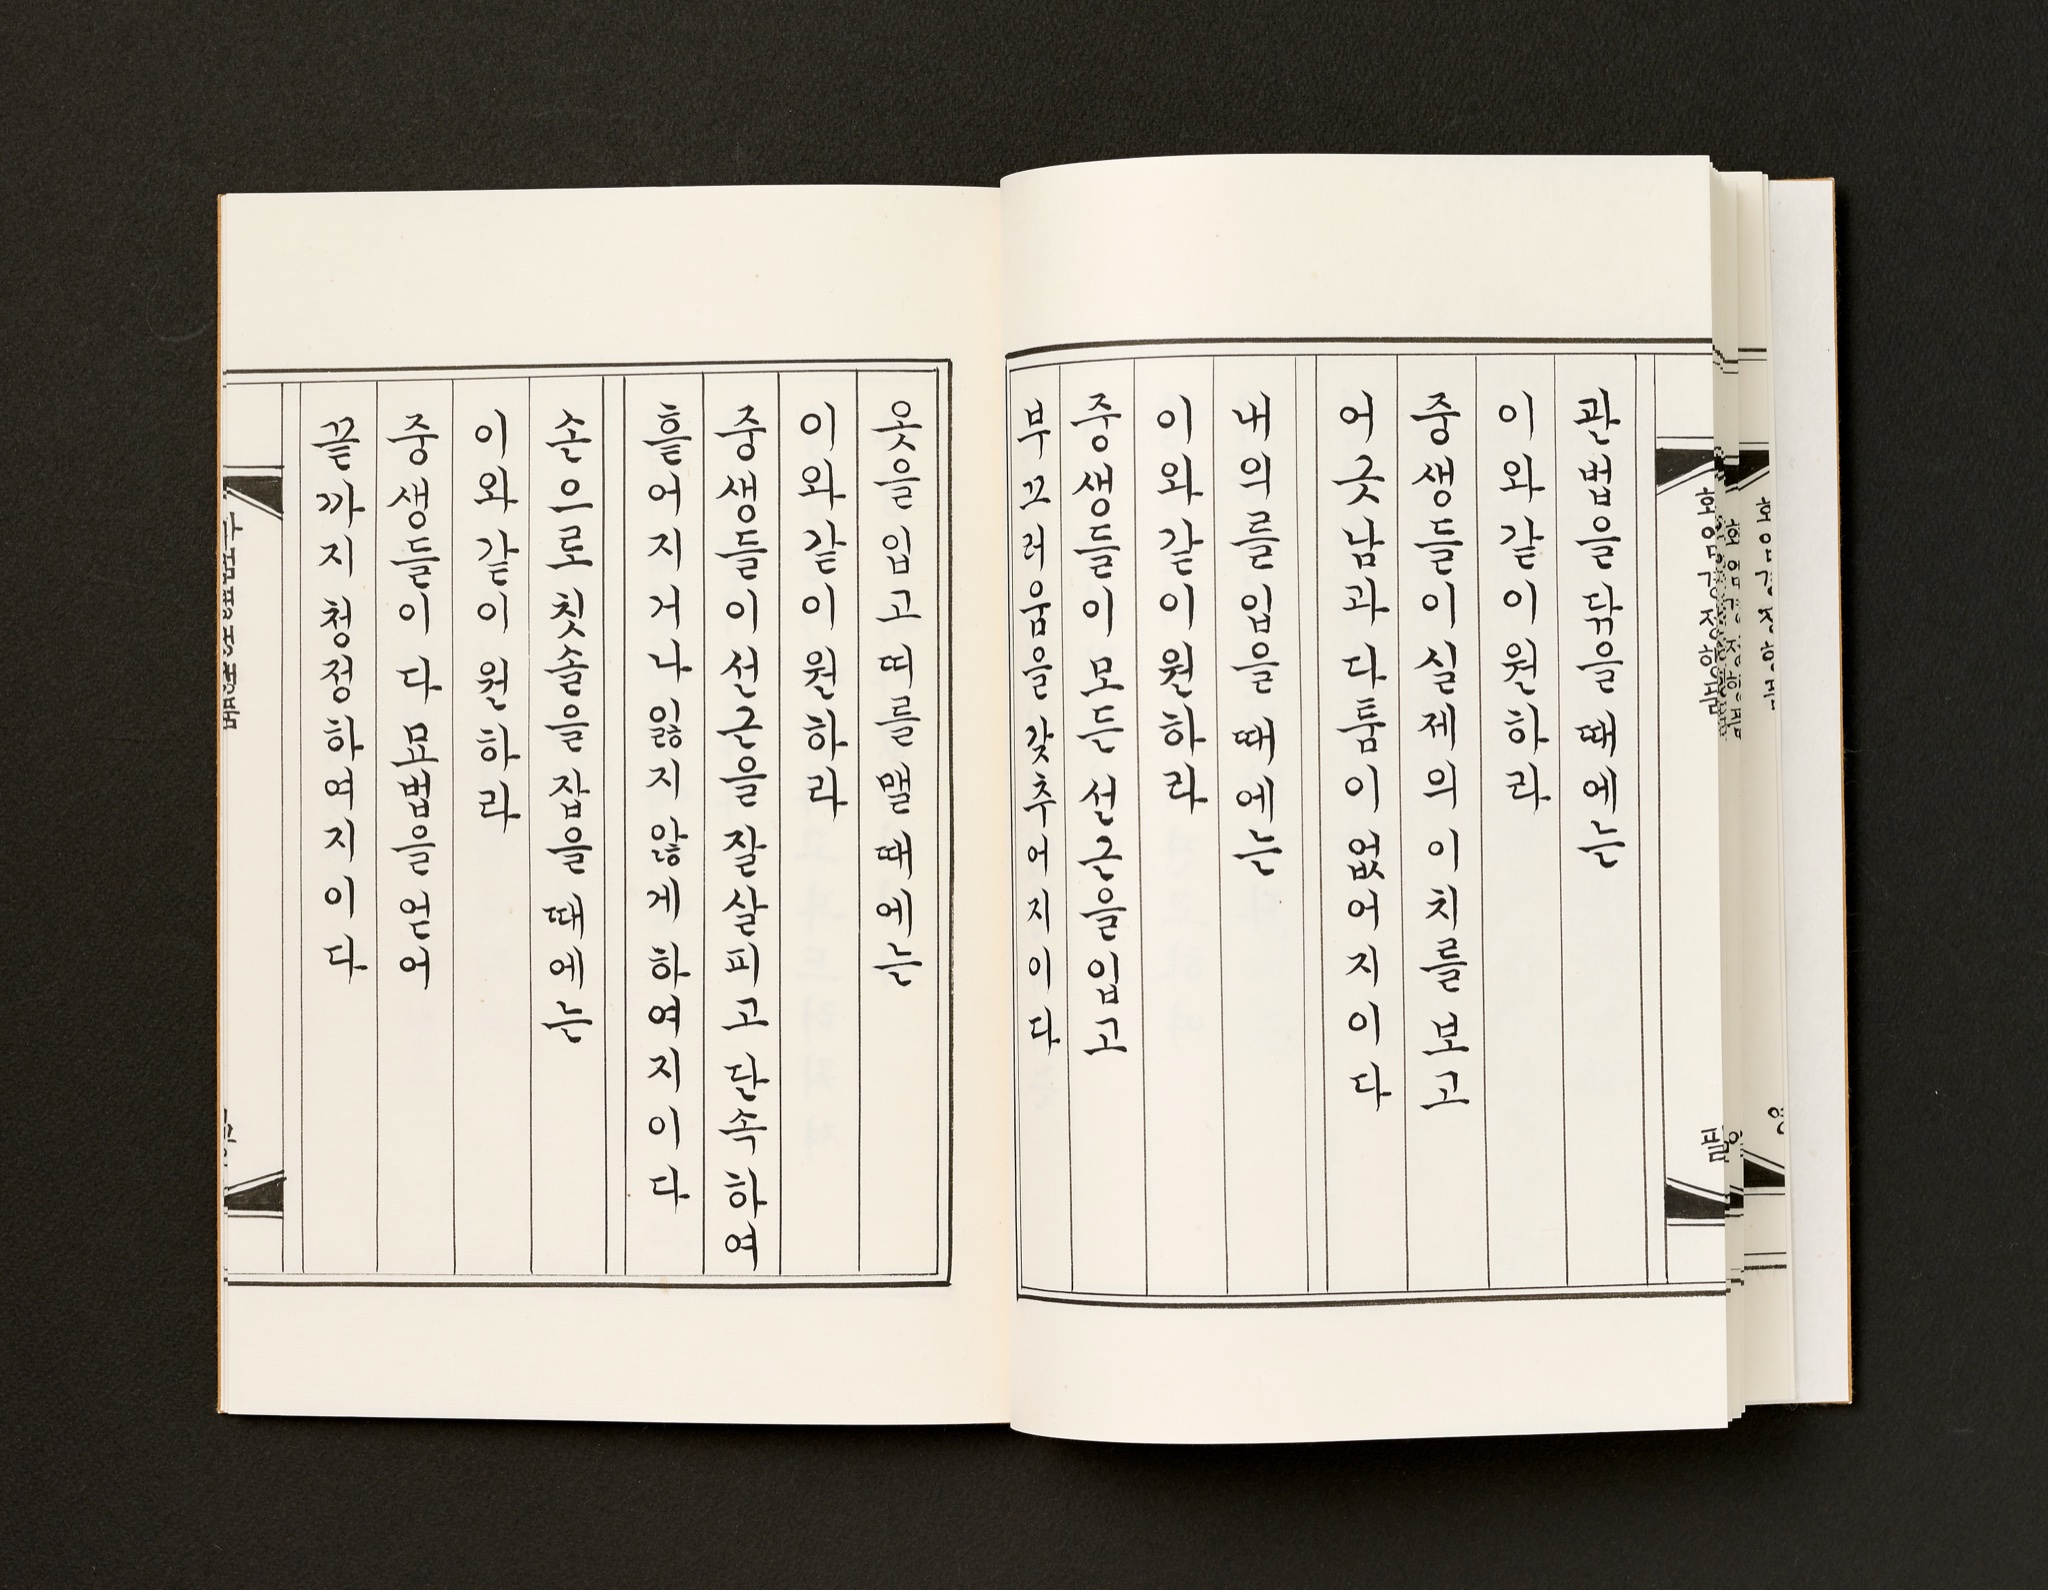 관법을 닦을 때에는
이와 같이 원하라
중생들이 실제의 이치를 보고
어긋남과 다툼이 없어지이다
내의를 입을 때에는
이와 같이 원하라
중생들이 모든 선근을 입고
부끄러움을 갖추어지이다
옷을 입고 띠를 맬 때에는
이와 같이 원하라
중생들이 선근을 잘 살피고 단속하여
흩어지거나 잃지 않게 하여지이다
손으로 칫솔을 잡을 때에는
이와 같이 원하라
중생들이 다 묘법을 얻어
끝까지 청정하여지이다
화엄경 정행품
팔